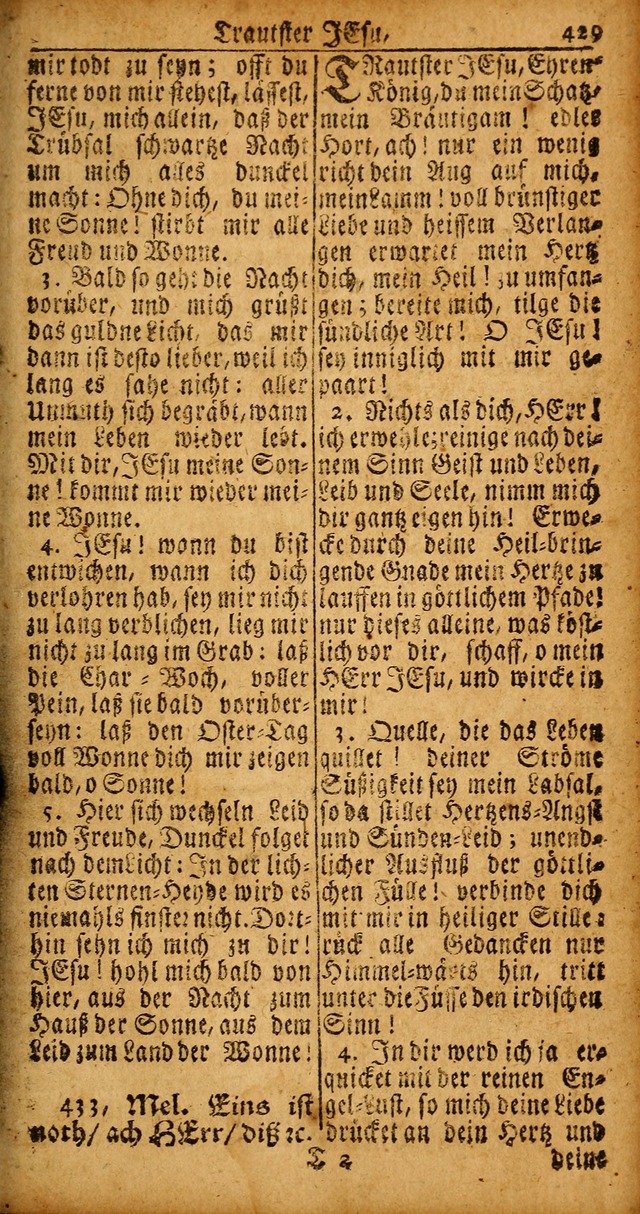 Trautster JEsu,
429
mir todt zu seyn; offt du
ferne von mir stehest, lässest,
JEsu, mich allein, daß der
Trübsal schwartze Nacht
um mich alles dunckel
macht: Ohne dich, du mei-
ne Sonne! stirbt mir alle
Freud und Wonne.
3. Bald so geht die Nacht
vorüber, und mich grüßt
das güldne Licht, das mir
dann ist desto lieber, weil ich
lang es sahe nicht: aller
Unmuth sich begräbt, wann
mein Leben wieder lebt.
Mit dir, JEsu meine Son-
ne! kommt mir wieder mei-
ne Wonne.
4. JEsu! wonn du bist
entwichen, wann ich dich
verlohren hab, sey mir nicht
zu lang verblichen, lieg mir
nicht zu lang im Grab: laß
die Char-Woch, voller
Pein, laß sie bald vorüber-
seyn: laß den Oster-Tag
voll Wonne dich mir zeigen
bald, o Sonne!
5. Hier sich wechseln Leid
und Freude, Dunckel folget
nach dem Licht: In der lich-
ten Sternen-Heyde wird es
niemahls finster nicht. Dort-
hin sehn ich mich zu dir!
JEsu! hohl mich bald von
hier, aus der Nacht zum
Hauß der Sonne, aus dem
Leid zum Land der Wonne!
433, Mel. Eins ist
noth/ ach HErr/ diß ꝛc.
TRautster JEsu, Ehren-
König, du mein Schatz
mein Bräutigam! edler
Hort, ach! nur ein wenig
richt dein Aug auf mich,
mein Lamm! voll brünstiger
Liebe und heissem Verlan-
gen erwartet mein Hertz
dich, mein Heil! zu umfan-
gen; bereite mich, tilge die
sündliche Art! O JEsu!
sey inniglich mit mir ge-
paart!
2. Nichts als dich, HErr!
ich erwehle; reinige nach dei-
nem Sinn Geist und Leben,
Leib und Seele, nimm mich
dir gantz eigen hin! Erwe-
cke durch deine Heil-brin-
gende Gnade mein Hertze zu
lauffen in göttlichem Pfade!
nur dieses alleine, was köst-
lich vor dir, schaff, o mein
HErr JEsu, und wircke in
mir!
3. Quelle, die das Leben
quillet! deiner Ströme
Süßigkeit sey mein Labsal,
so da stillet Hertzens-Angst
und Sünden-Leid; unend-
licher Ausfluß der göttli-
chen Fülle! verbinde dich
mit mir in heiliger Stille:
rück alle Gedancken nur
Himmel-wärts hin, tritt
unter die Füsse den irdischen
Sinn!
4. In dir werd ich ja er-
quicket mit der reinen En-
gel-Lust, so mich deine Liebe
drücket an dein Hertz und
T 2
deine